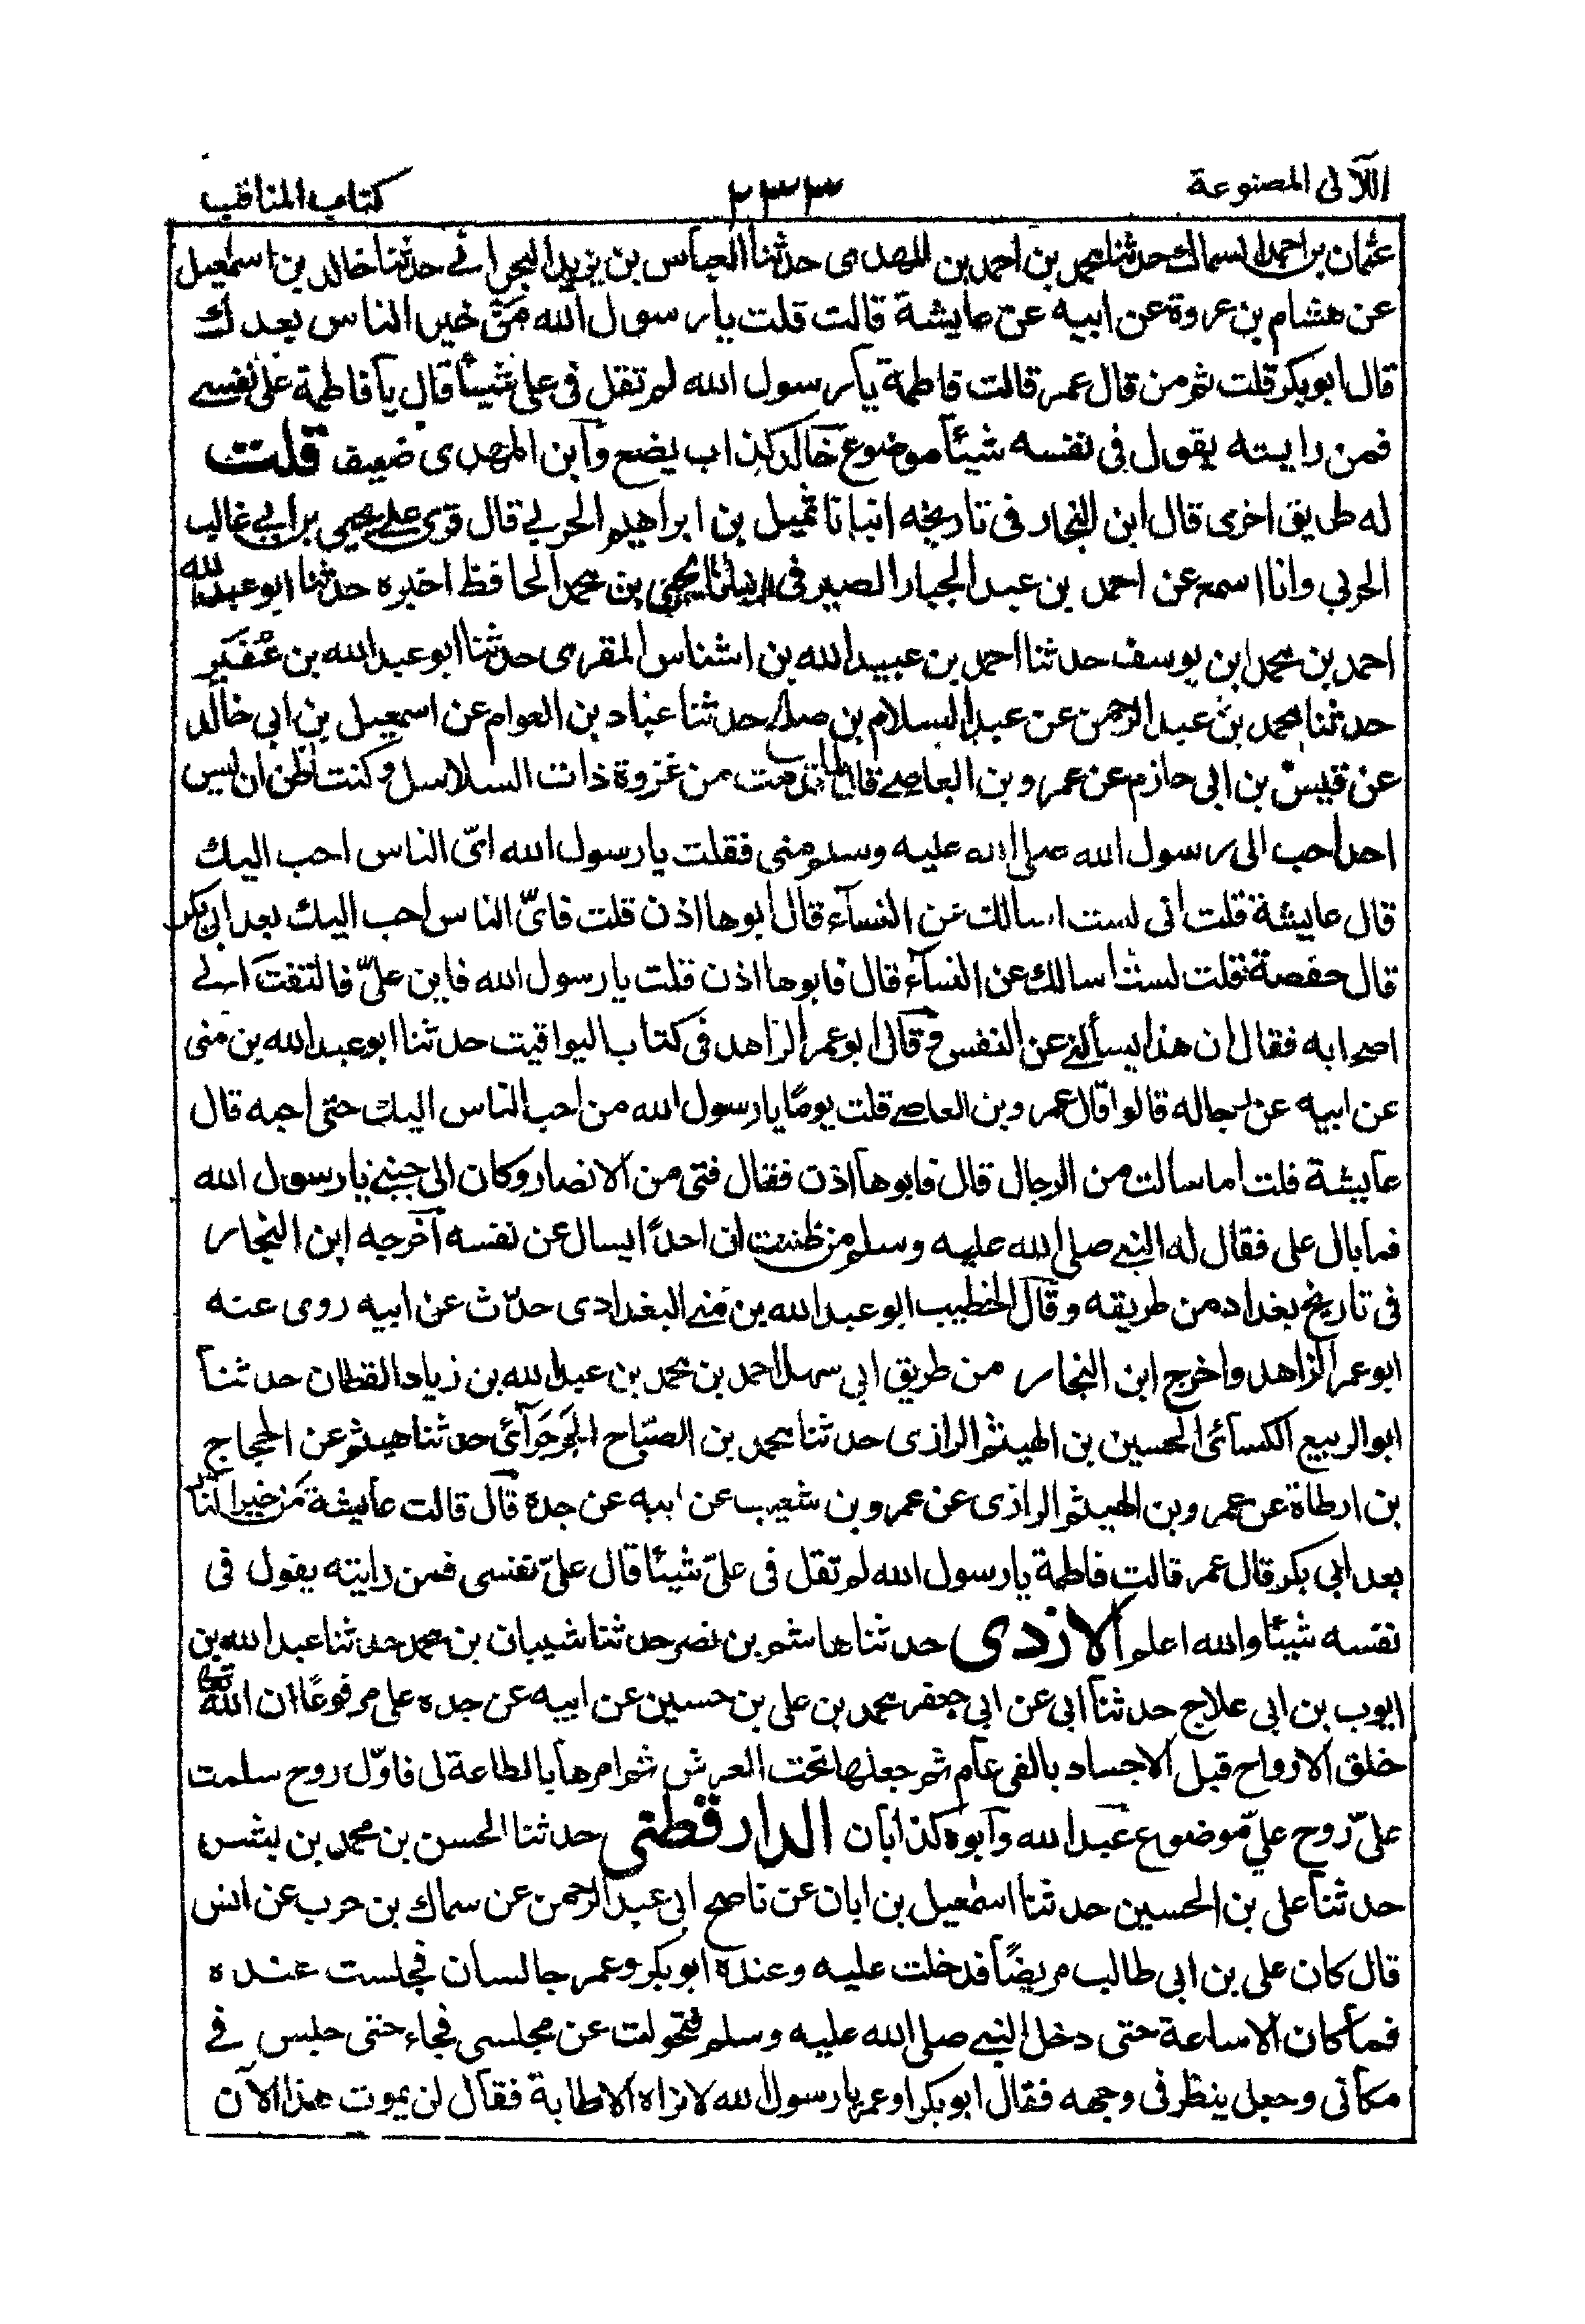 اللآلى المصنوعة
٢٣٣
كتاب المناقب
عثمان بن احمد السماك حدثنا محمد بن احمد بن المهدى حدثنا العباس بن يزيد البحرانى حدثنا خالد بن اسمعيل
عن هشام بن عروة عن ابيه عن عايشة قالت قلت يا رسول الله من خير الناس بعدك
قال ابوبكر قلت ثم من قال عمر قالت فاطمة يا رسول الله لم تقل فى على شيئا قال يا فاطمة على نفسى
فمن رايته يقول فى نفسه شيئا موضوع خالد كذاب يضع وابن المهدى ضعيف قلت
له طريق اخرى قال ابن النجار فى تاريخه انبانا ثميل بن ابراهيم الحربى قال قرئ على يحيى بن ابى غالب
الحربى وانا اسمع عن احمد بن عبد الجبار الصيرفى انبانا يحيى بن محمد الحافظ اخبره حدثنا ابو عبد الله
احمد بن محمد ابن يوسف حدثنا احمد بن عبيد الله بن اشناس المقرى حدثنا ابو عبد الله بن عُفَير
حدثنا محمد بن عبد الرحمن عن عبد السلام بن صالح حدثنا عباد بن العوام عن اسمعيل بن ابى خالد
عن قيس بن ابى حازم عن عمرو بن العاصى قال لما قدمت من غزوة ذات السلاسل وكنت اظن ان ليس
احد احب الى رسول الله صلى الله عليه وسلم منى فقلت يا رسول الله اىّ الناس احب اليك
قال عايشة قلت انى لست اسالك عن النسآء قال ابوها اذن قلت فاىّ الناس احب اليك بعد ابى بكر
قال حفصة قلت لست اسالك عن النسآء قال فابوها اذن قلت يا رسول الله فاين علىّ فالتفت الى
اصحابه فقال ان هذا يسألنى عن النفس وقال ابو عمر الزاهد فى كتاب اليواقيت حدثنا ابو عبد الله بن منى
عن ابيه عن رجاله قالوا قال عمرو بن العاصى قلت يومًا يا رسول الله من احب الناس اليك حتى احبه قال
عايشة قلت اما سالت من الرجال قال فابوها اذن فقال فتى من الانصار وكان الى جنبى يا رسول الله
فما بال على فقال له النبى صلى الله عليه وسلم من ظننت ان احدًا يسال عن نفسه اخرجه ابن النجار
فى تاريخ بغداد من طريقه وقال الخطيب ابو عبد الله بن منى البغدادى حدّث عن ابيه روى عنه
ابو عمر الزاهد واخرج ابن النجار من طريق ابى سهل احمد بن محمد بن عبد الله بن زياد القطان حدثنا
ابو الربيع الكسائى الحسين بن الهيثم الرازى حدثنا محمد بن الصبّاح الجَرجَرآئى حدثنا هيثم عن الحجاج
بن ارطاة عن عمرو بن الهيثم الرازى عن عمرو بن شعيب عن ابيه عن جده قال قالت عايشة من خير الناس
بعد ابى بكر قال عمر قالت فاطمة يا رسول الله لم تقل فى علىّ شيئا قال علىّ نفسى فمن رايته يقول فى
نفسه شيئا والله اعلم الازدى حدثنا هاشم بن نصر حدثنا شيبان بن محمد حدثنا عبد الله بن
ايوب بن ابى علاج حدثنا ابى عن ابى جعفر محمد بن على بن حسين عن ابيه عن جده على مرفوعًا ان الله تعالى
خلق الارواح قبل الاجساد بالفى عام ثم جعلها تحت العرش ثم امرها بالطاعة لى فاوّل روح سلمت
علىّ روح علىّ موضوع عبد الله وابوه كذابان الدارقطنى حدثنا الحسن بن محمد بن بشر
حدثنا على بن الحسين حدثنا اسمعيل بن ابان عن ناصح ابى عبد الرحمن عن سماك بن حرب عن انس
قال كان على بن ابى طالب مريضًا فدخلت عليه وعنده ابو بكر وعمر جالسان فجلست عنده
فما كان الا ساعة حتى دخل النبى صلى الله عليه وسلم فتحولت عن مجلسى فجاء حتى جلس فى
مكانى وجعل ينظر فى وجهه فقال ابو بكر او عمر يا رسول الله لا نراه الا لمابة فقال لن يموت هذا الآن